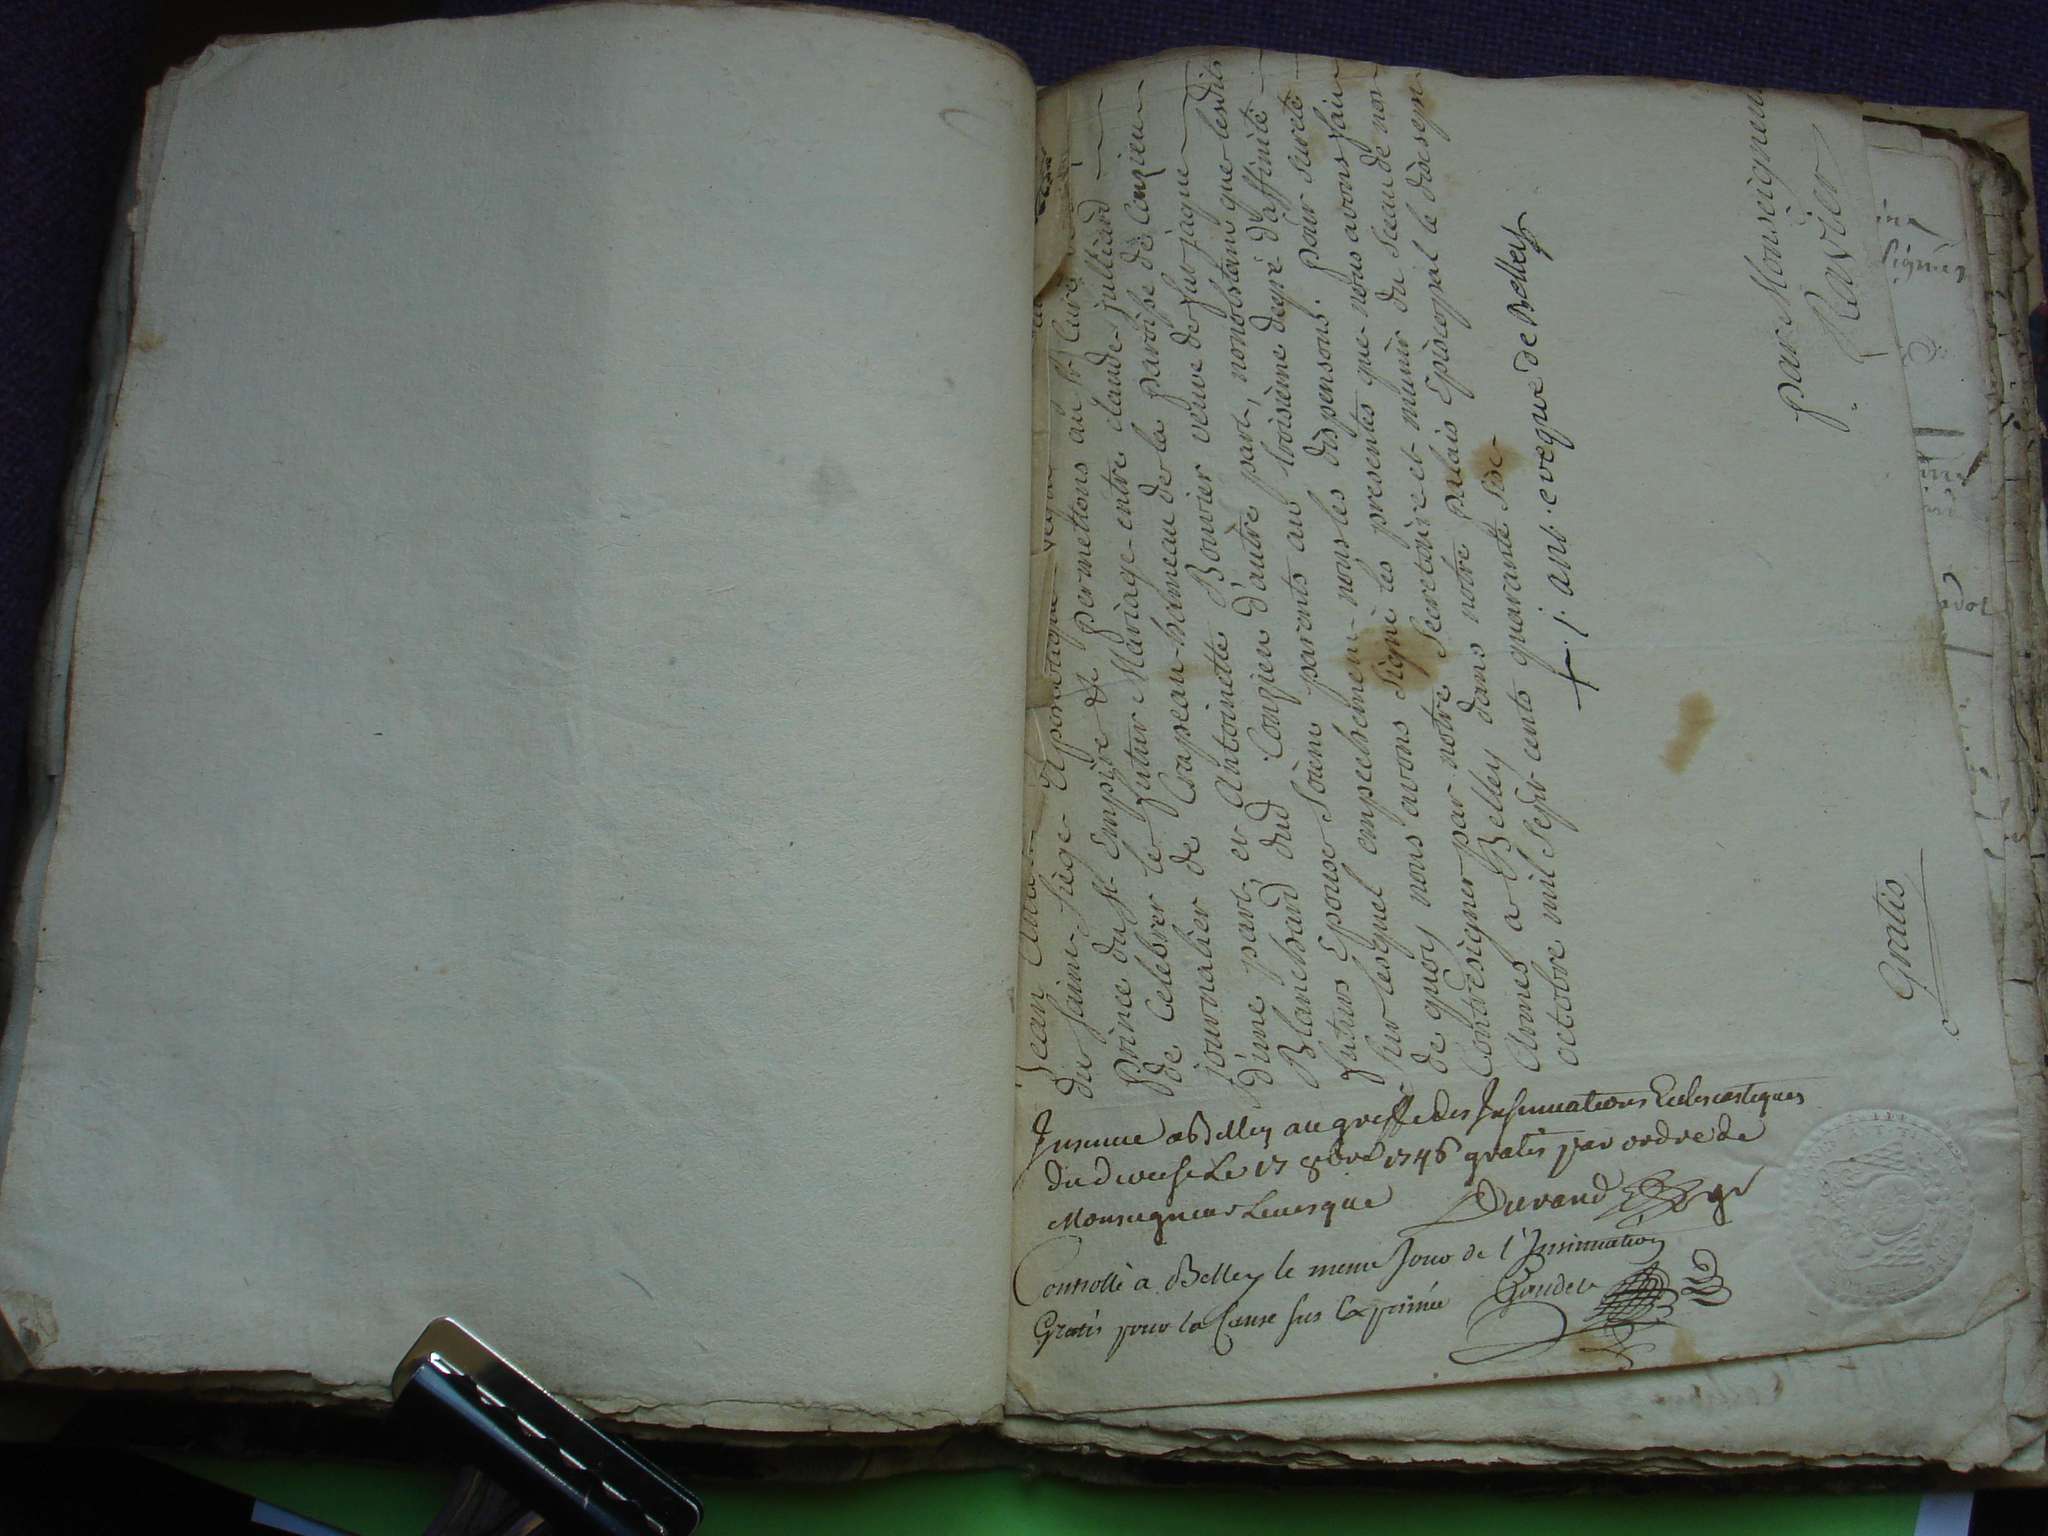 Jean
du saint siege Apostolique
Prince du st. Empire & permettons au sr. Curé
de Celebrer le futur Mariage entre claude julliard
journalier de Crapeau hameau de la paroisse de Conzieu
d'une part, et Antoinette Bouvier veuve de fut jaque
Blanchard dud Conzieu d'autre part, nonobstant que lesdits
futurs Epoux Soient parents au troisième degré d'affinité
sur lesquel empechement nous les dispensons. pour sureté
de quoy nous avons signé les presentes que nous avons fait
Contresigner par notre secretaire et munir du sceau de nos
Armes a Belley dans notre palais Episcopal le dixsept
octobre mil sept cents quarante six
+ j. ant. eveque de Belley
par Monseigneur
Ravier
Gratis
Insinué a Belley au greffe des Insinuations Ecclesiastiques
du diocese Le 17 8bre 1746 gratis par ordre de
Monseigneur Levesque Durand gr
Controllé a Belley le meme Jour de l'Insinuation
Gratis pour la Cause sus Exprimée
signés